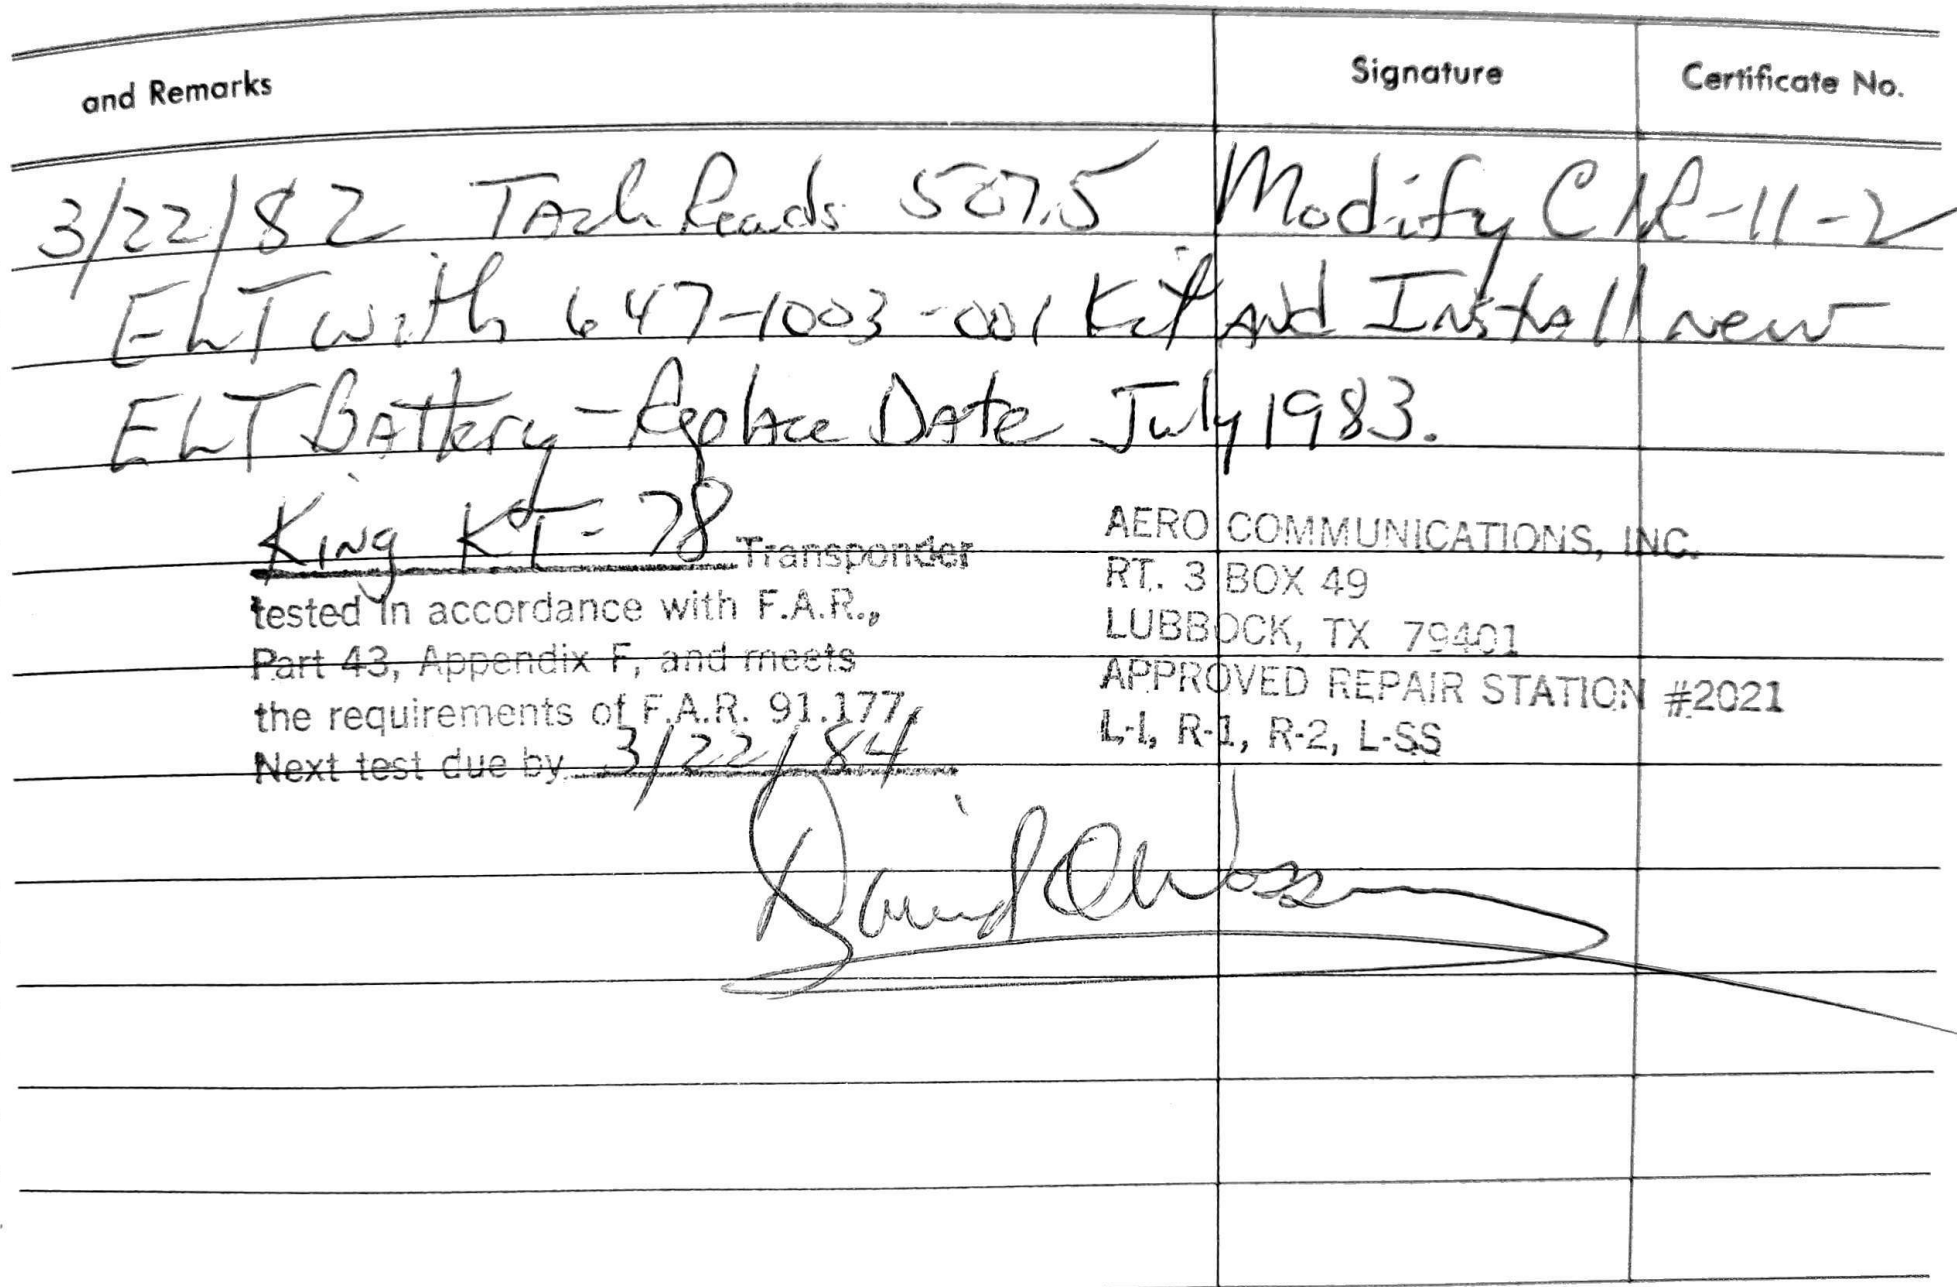 and Remarks
Signature
Certificate No.
3/22/82 Tach Reads 507.5 Modify CIR-11-2
ELT with 647-1003-001 Kit And Install new
ELT Battery - Replace Date July 1983.
King KT-78 Transponder
tested in accordance with F.A.R.,
Part 43, Appendix F, and meets
the requirements of F.A.R. 91.177,
Next test due by 3/22/84
AERO COMMUNICATIONS, INC.
RT. 3 BOX 49
LUBBOCK, TX 79401
APPROVED REPAIR STATION #2021
L-I, R-1, R-2, L-SS
David